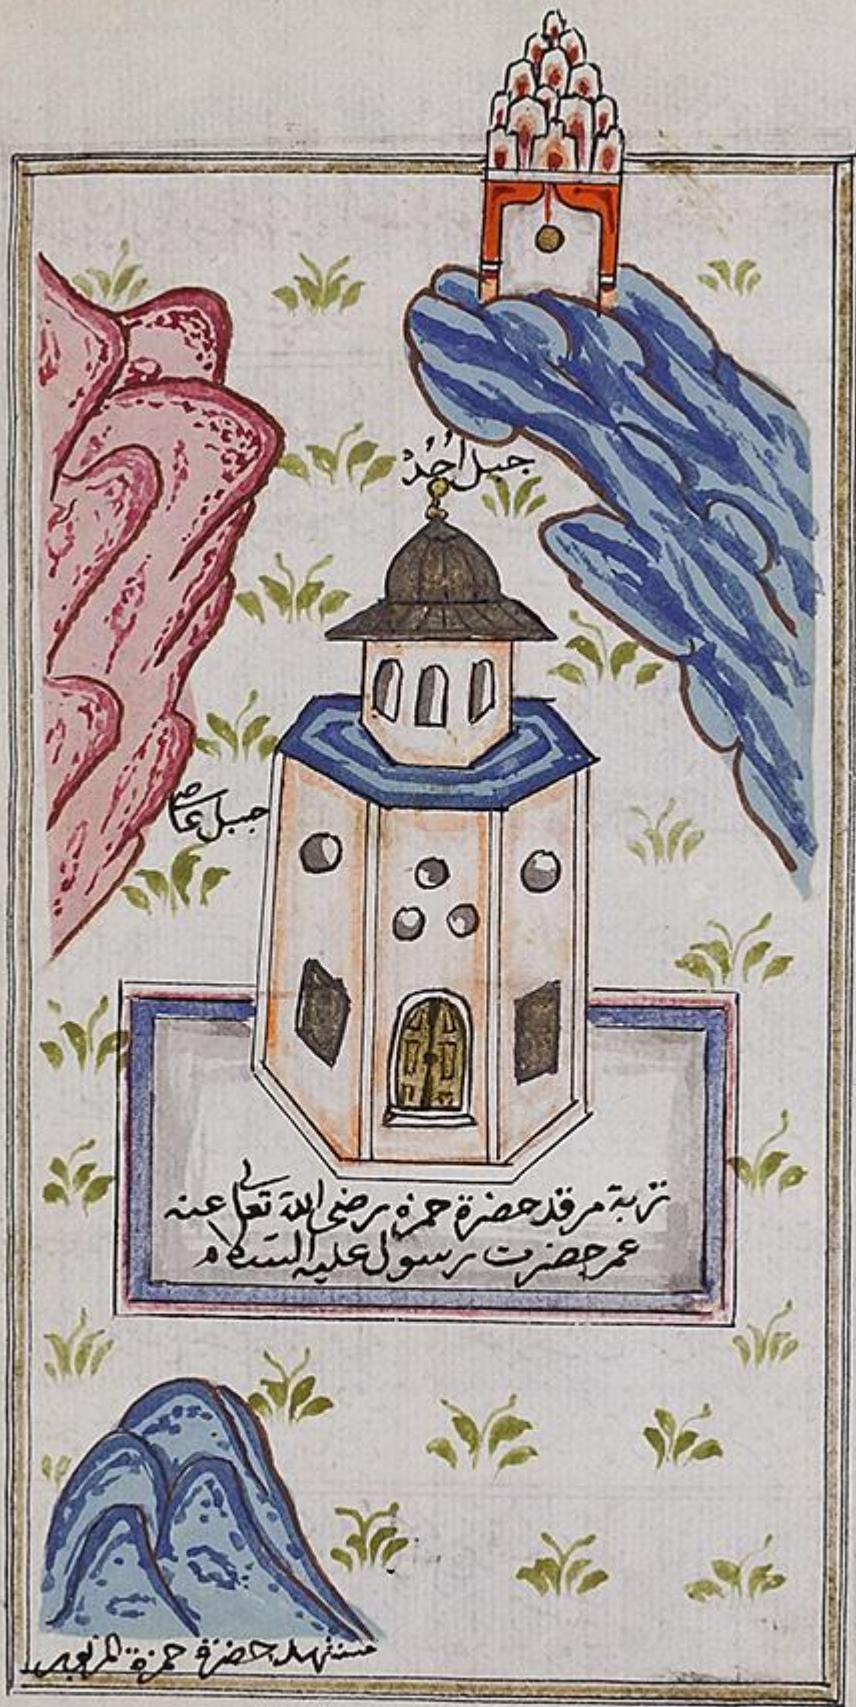 جبل اُحُدْ
جبل عاص
تربة مرقد حضرة حمزه رضى الله تعالى عنه
عمر حضرت رسول عليه السلام
حضرة حمزة